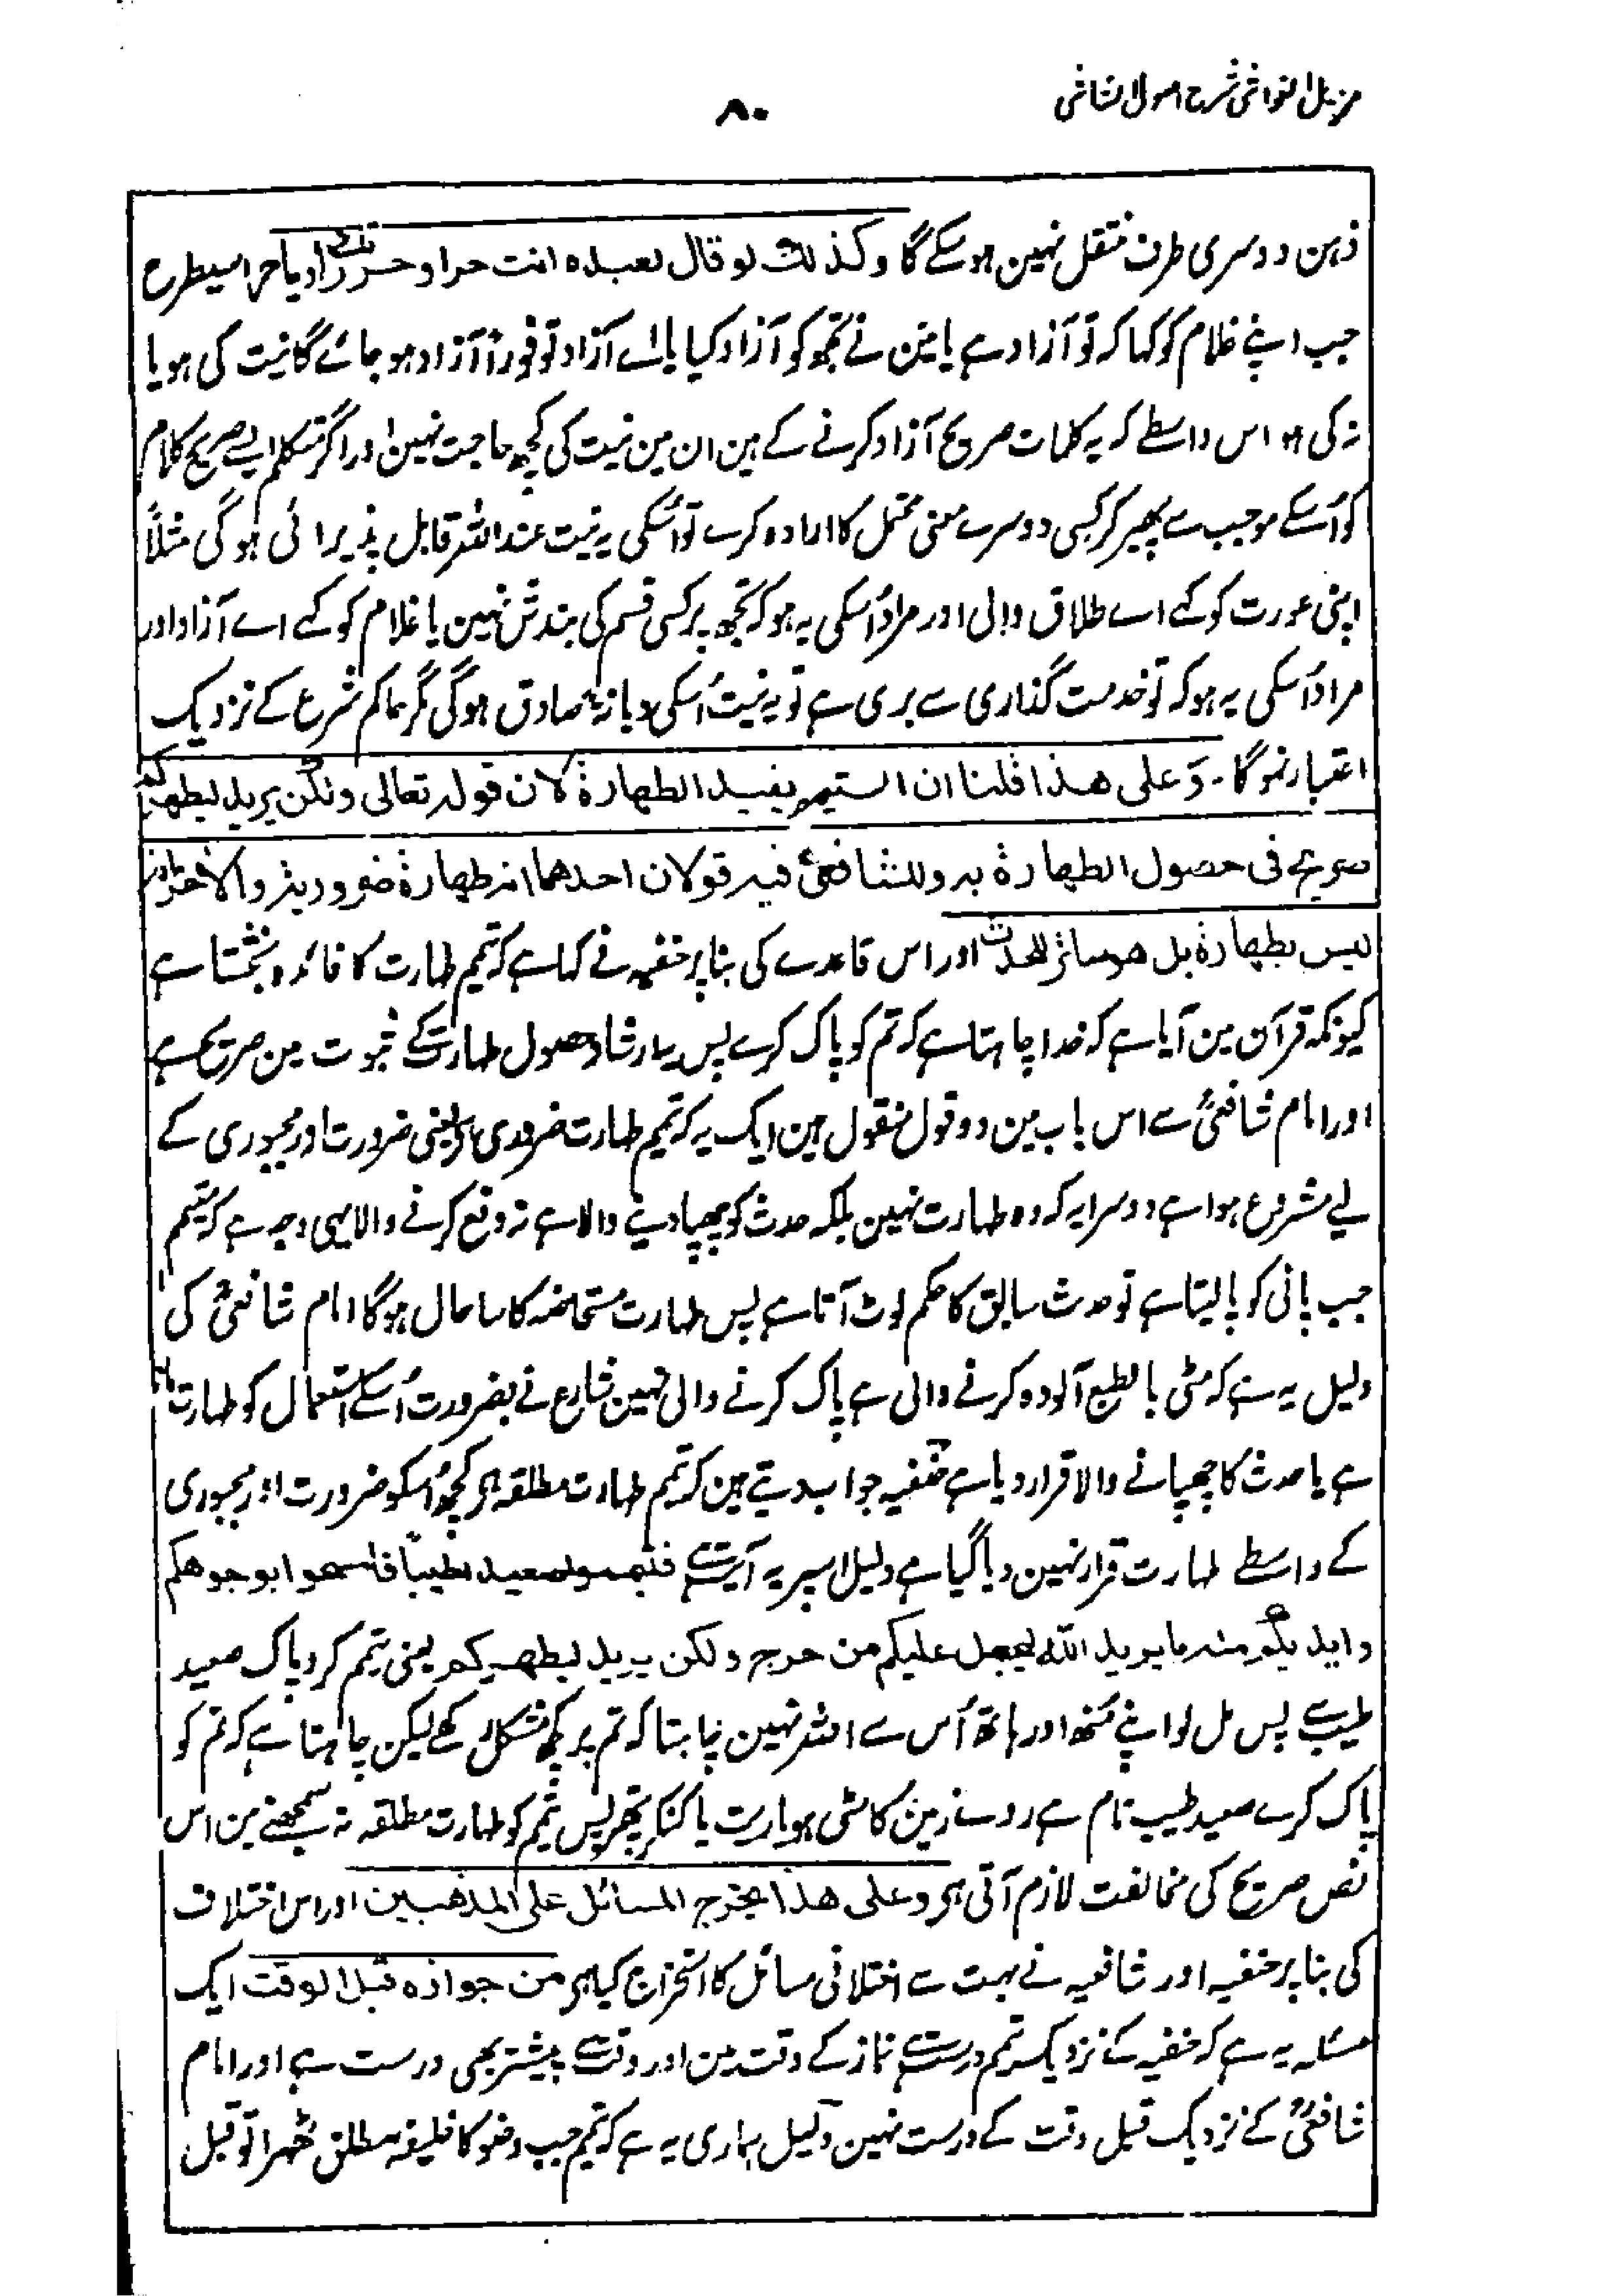 مزیل الغواشی شرح اصول الشاشی
۸۰
ذہن دوسری طرف منتقل نہین ہوسکے گا وکذلک لو قال لعبدہ انت حر او حررتک او یا حر اسیطرح
جب اپنے غلام کو کہا کہ تو آزاد ہے یا مین نے تجھ کو آزاد کیا یا اے آزاد تو فوراً آزاد ہو جائے گا نیت کی ہو یا
نہ کی ہو اس واسطے کہ یہ کلمات صریح آزاد کرنے کے ہین ان مین نیت کی کچھ حاجت نہین اور اگر متکلم ایسے صریح کلام
کو اُسکے موجب سے پھیر کر کسی دوسرے معنی محتمل کا ارادہ کرے تو اُسکی یہ نیت عنداللہ قابل پذیرائی ہوگی مثلاً
اپنی عورت کو کہے اے طلاق والی اور مراد اُسکی یہ ہو کہ تجھ پر کسی قسم کی بندش نہین یا غلام کو کہے اے آزاد اور
مراد اُسکی یہ ہو کہ تو خدمت گذاری سے بری ہے تو یہ نیت اُسکی دیانۃً صادق ہوگی مگر حاکم شرع کے نزدیک
اعتبار نہوگا۔ وعلی ھذا قلنا ان التیمم یفید الطھارۃ لان قولہ تعالی ولکن یرید لیطھرکم
صریح فی حصول الطھارۃ بہ وللشافعیؒ فیہ قولان احدھما انہ طھارۃ ضروریۃ والاخر انہ
لیس بطھارۃ بل ھو ساتر للحدث اور اس قاعدے کی بنا پر حنفیہ نے کہا ہے کہ تیمم طہارت کا فائدہ بخشتا ہے
کیونکہ قرآن مین آیا ہے کہ خدا چاہتا ہے کہ تم کو پاک کرے پس یہ ارشاد حصول طہارت کے ثبوت مین صریح ہے
اور امام شافعیؒ سے اس باب مین دو قول منقول ہین ایک یہ کہ تیمم طہارت ضروری ہے یعنی ضرورت اور مجبوری کے
لیے مشروع ہوا ہے دوسرا یہ کہ وہ طہارت نہین بلکہ حدث کو چھپا دینے والا ہے نہ دفع کرنے والا یہی وجہ ہے کہ متیمم
جب پانی کو پا لیتا ہے تو حدث سابق کا حکم لوٹ آتا ہے پس طہارت مستحاضہ کا سا حال ہوگا امام شافعیؒ کی
دلیل یہ ہے کہ مٹی بالطبع آلودہ کرنے والی ہے پاک کرنے والی نہین شارع نے بضرورت اُسکے استعمال کو طہارت مانا
ہے یا حدث کا چھپانے والا قرار دیا ہے حنفیہ جواب دیتے ہین کہ تیمم طہارت مطلقہ ہی کچھ اُسکو ضرورت اور مجبوری
کے واسطے طہارت قرار نہین دیا گیا ہے دلیل اسپر یہ آیت ہے فتیمموا صعیدا طیبا فامسحوا بوجوھکم
وایدیکم منہ ما یرید اللہ لیجعل علیکم من حرج ولکن یرید لیطھرکم یعنی تیمم کرو پاک صعید
طیب سے پس مل لو اپنے منھ اور ہاتھ اُس سے اللہ نہین چاہتا کہ تم پر کچھ مشکل رکھے لیکن چاہتا ہے کہ تم کو
پاک کرے صعید طیب نام ہے روے زمین کا مٹی ہو یا ریت یا کنکر پتھر پس تیمم کو طہارت مطلقہ نہ سمجھنے مین اس
نص صریح کی مخالفت لازم آتی ہی وعلی ھذا یخرج المسائل علی المذھبین اور اس اختلاف
کی بنا پر حنفیہ اور شافعیہ نے بہت سے اختلافی مسائل کا استخراج کیا ہی من جوازہ قبل الوقت ایک
مسئلہ یہ ہے کہ حنفیہ کے نزدیک تیمم درست ہے نماز کے وقت مین اور وقت سے پیشتر بھی درست ہے اور امام
شافعیؒ کے نزدیک قبل وقت کے درست نہین دلیل ہماری یہ ہے کہ تیمم جب وضو کا خلیفہ مطلق ٹھہرا تو قبل